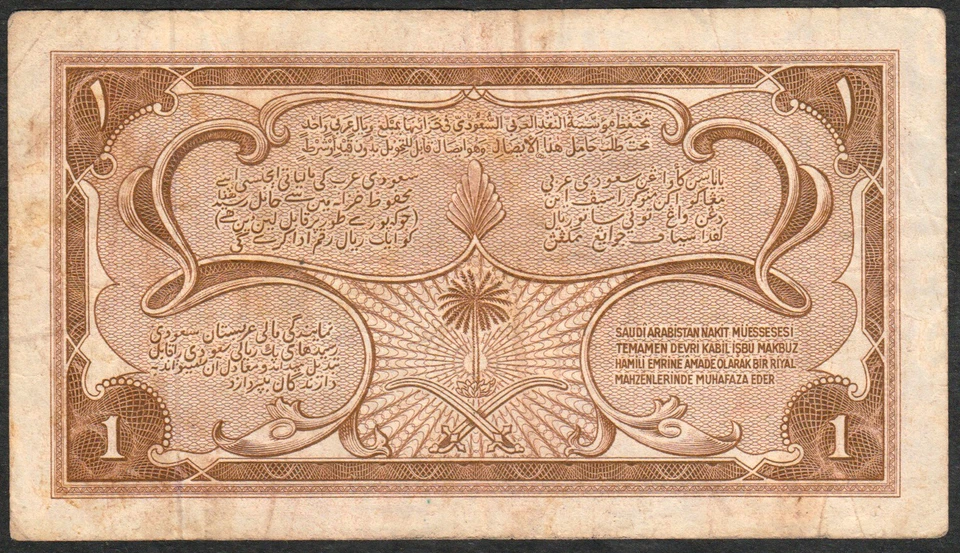 ١
١
تحتفظ مؤسسة النقد العربي السعودي في خزائنها بمبلغ ريال عربي واحد
تحت طلب حامل هذا الايصال وهو ايصال قابل للتحويل بدون قيد او شرط
سعودي عرب کی مالیاتی ایجنسی اسے
محفوظ خزانہ میں سے حامل رسید ھذا
(جو پورے طور پر قابل لین دین ھے)
کو ایک ریال رقم ادا کرے گی
سعودي عربي
ريال
نمایندگی مالی عربستان سعودی
رسیدهای یک ریالی سعودی را قابل
تبدیل میداند و معادل آن میتواند به
دارندگان بپردازد
SAUDİ ARABİSTAN NAKİT MÜESSESESİ
TEMAMEN DEVRİ KABİL İŞBU MAKBUZ
HAMİLİ EMRİNE AMADE OLARAK BİR RİYAL
MAHZENLERİNDE MUHAFAZA EDER
1
1